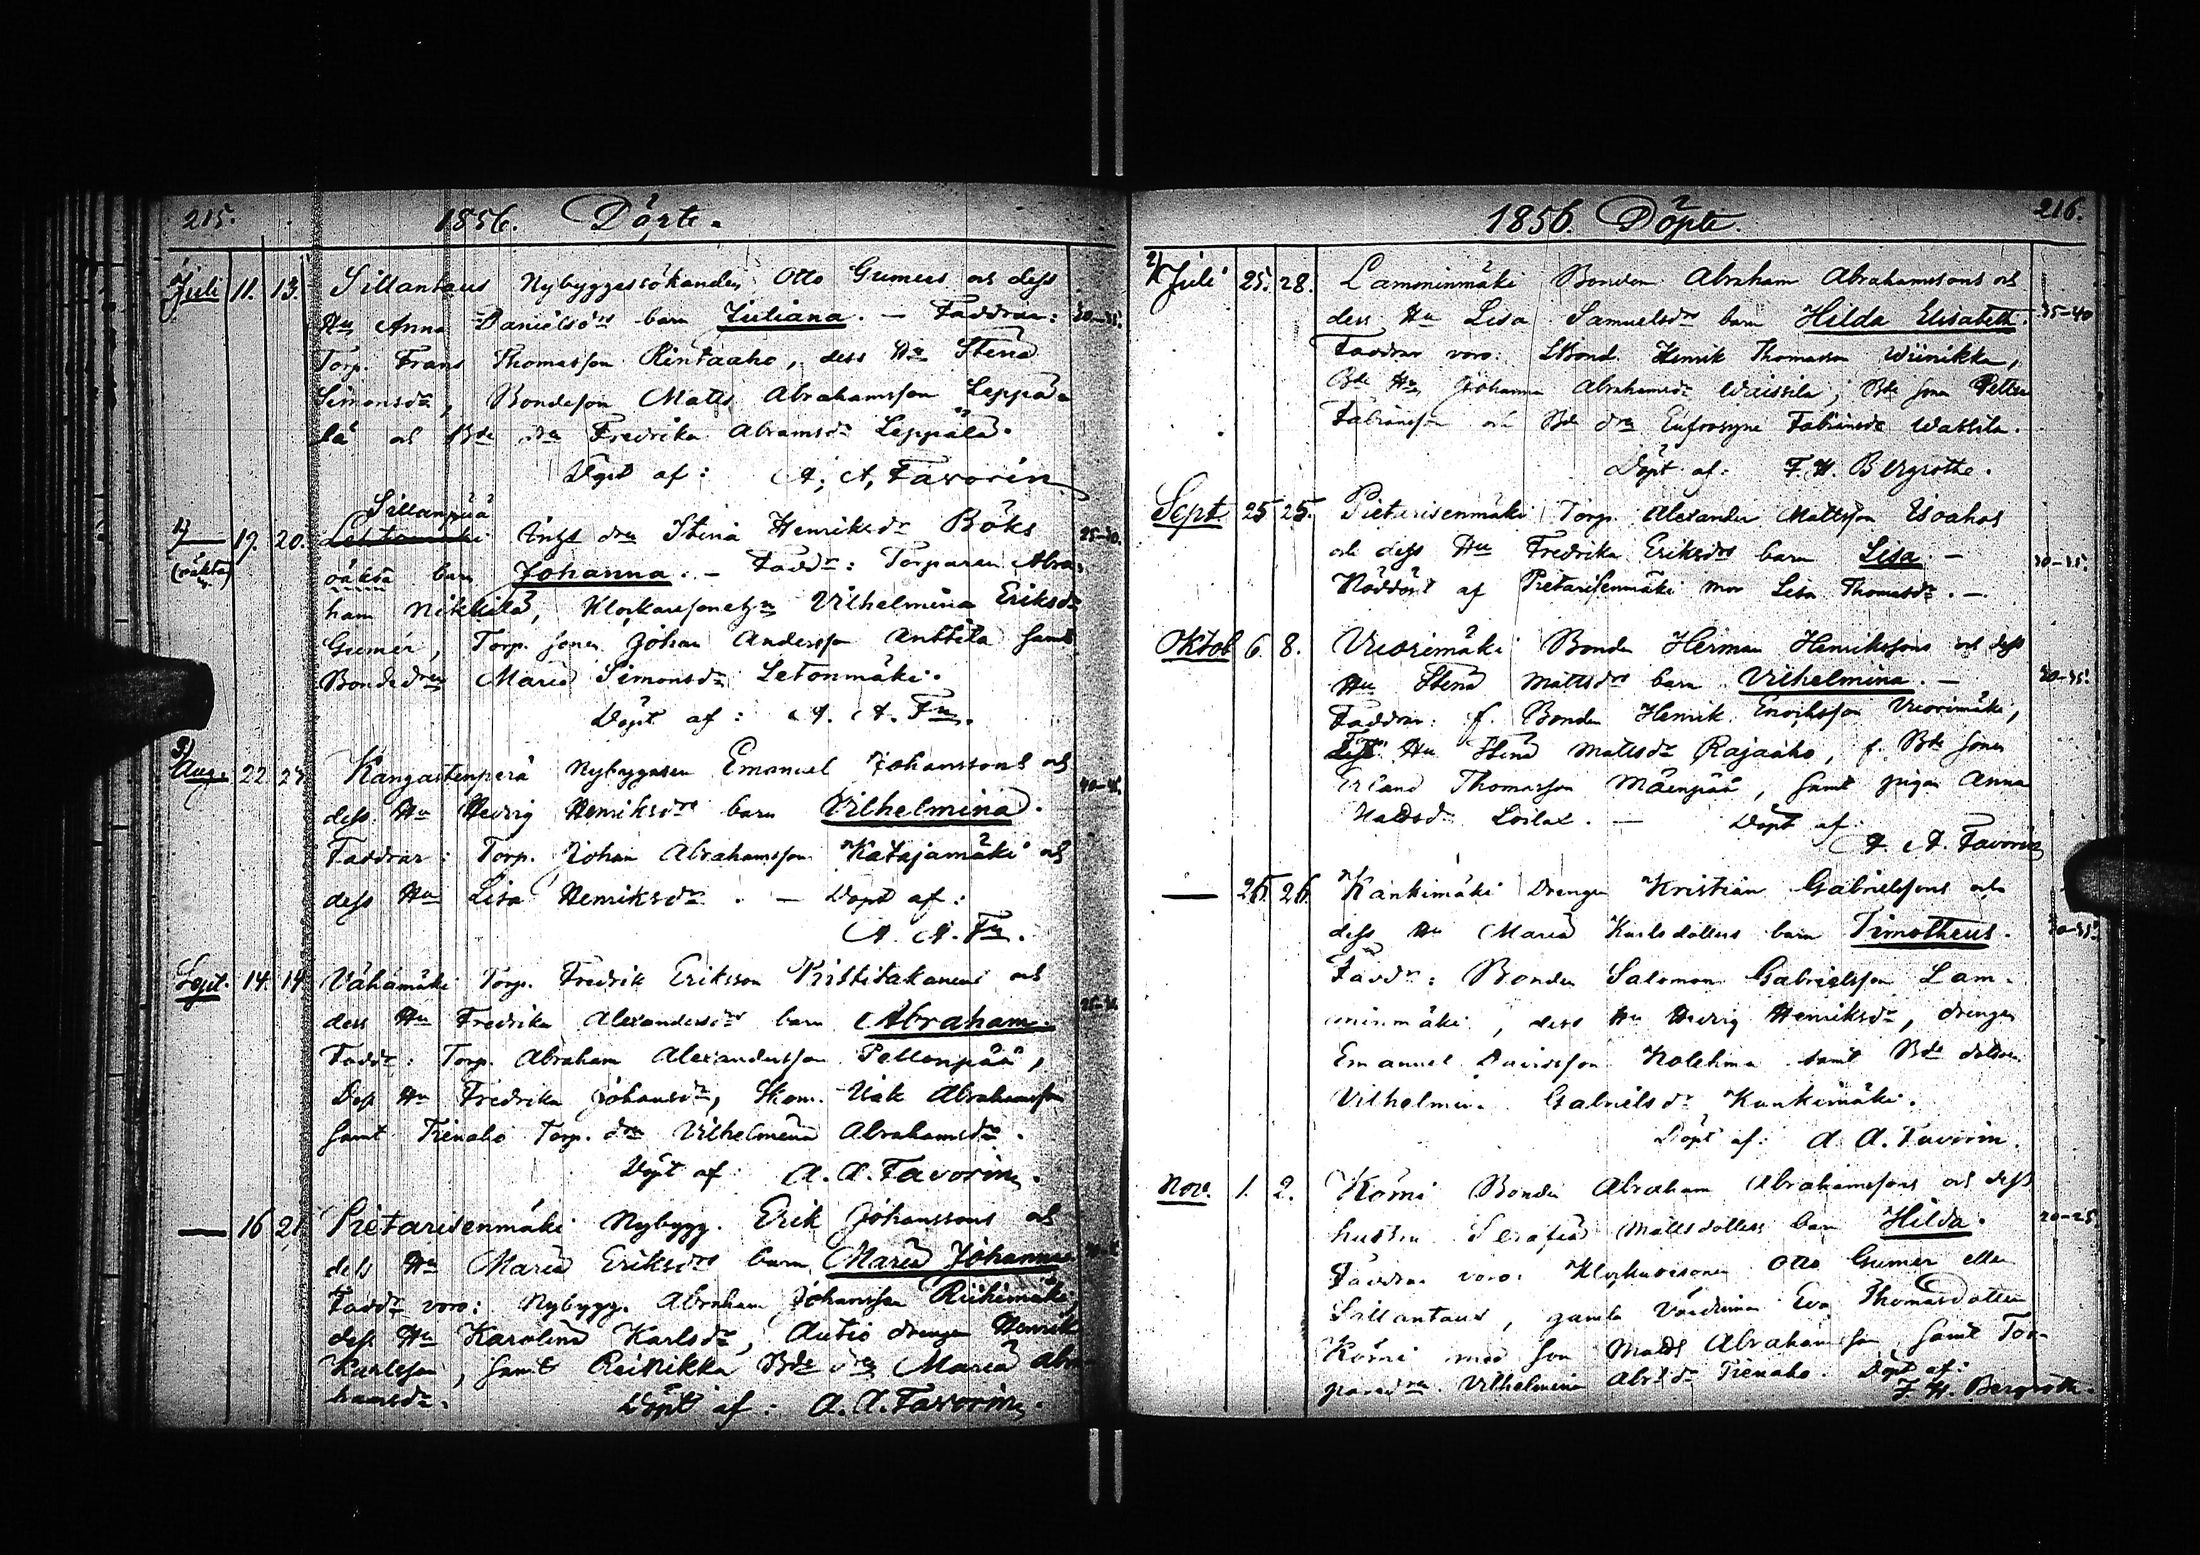 215.
1856. Döpte.
Juli 11. 13. Sillantaus Nybyggessökanden Otto Gumers och dess
Hu Anna Danielsdrs barn Juliana. — Faddrar: 30-35.
Torp. Frans Thomasson Rintaaho, dess Hu Stina
Simonsdr, Bondeson Matts Abrahamsson Leppä-
lä och Bde dr Fredrika Abramsdr Leppälä.
Döpt af: A. A. Favorin
Sillanpää
1) — 19. 20. Inhs drn Stina Henriksdr Böks 25-30.
(oäkta) oäkta barn Johanna. — Faddr: Torparen Abra-
ham Nikkilä, Klockaresonehn Vilhelmina Eriksdr
Gumér, Torp. sonen Johan Andersson Anttila samt
Bondedrn Maria Simonsdr Letonmäki.
Döpt af: A. A. Fn.
3) Aug. 22. 24. Kangastenperä Nybyggaren Emanuel Johanssons och 40-45.
dess Hu Hedvig Henriksdrs barn Vilhelmina.
Faddrar: Torp. Johan Abrahamsson Katajamäki och
dess Hu Lisa Henriksdr. — Döpt af:
A. A. Fn.
Sept. 14. 14. Vähämäki Torp. Fredrik Eriksson och
dess Hu Fredrika Alexandersdrs barn Abraham.
Faddr: Torp. Abraham Alexandersson Peltonpää,
Dess Hu Fredrika Johansdr, Skom. Isak Abrahamsson
samt Tienaho Torp. drn Vilhelmina Abrahamsdr.
Döpt af: A. A. Favorin.
— 16 21. Pietarisenmäki Nybygg. Erik Johanssons och
dess Hu Maria Eriksdrs barn Maria Johanna
Faddr voro: Nybygg. Abraham Johansson Riihimäki,
dess Hu Karolina Karlsdr, Autio drengen Henrik
Karlsson, samt Reinikka Bde drn Maria Abra-
hamsdr. Döpt af: A. A. Favorin.
1856. Döpte. 216.
2) Juli 25. 28. Lamminmäki Bonden Abraham Abrahamssons och
dess Hu Lisa Samuelsdr barn Hilda Elisabeth. 35-40
Faddrar voro: Bond. Henrik Thomasson Wiinikka,
Bde Hu Johanna Abrahamsdr, Bde sonen Petter
Fabiansson och Bde drn Eufrosyne Fabiansdr Wattila.
Döpt af: F. H. Bergrothe.
Sept. 25 25. Pietarisenmäki Torp. Alexander Mattsson Isoahos
och dess Hu Fredrika Eriksdrs barn Lisa. — 30-35.
Nöddöpt af Pietarisenmäki mor Lisa Thomasdr. —
Oktob 6. 8. Vuorimäki Bonden Herman Henrikssons och dess
Hu Stina Mattsdrs barn Vilhelmina. — 30-35.
Faddrar: f. Bonden Henrik Vuorimäki,
Hu Stina Mattsdr Rajaaho, f. Bde sonen
Erland Thomasson Mäenpää, samt pigan Anna
Döpt af:
A. A. Favorin
— 25. 26. Kankimäki Drengen Kristian Gabrielssons och
dess Hu Maria Karlsdotters barn Timotheus. 30-35.
Faddr: Bonden Salomon Gabrielsson Lam-
minmäki, dess Hu Hedvig Henriksdr, drengen
Emanuel Davidsson Kolehma samt Bde dottren
Vilhelmin. Gabrielsdr Kankimäki.
Döpt af: A. A. Favorin.
Nov. 1. 2. Körni Bonden Abraham Abrahamssons och dess
hustru Serafia Mattsdotters barn Hilda. 20-25
Faddrar voro: Otto Gumer eller
Sillantaus, gamla Värdinnan Eva Thomasdotter
Körni med son Matts Abrahamsson samt Tor-
paredrn Vilhelmina Abr.dr Tienaho. Döpt af:
F. H. Bergrothe.